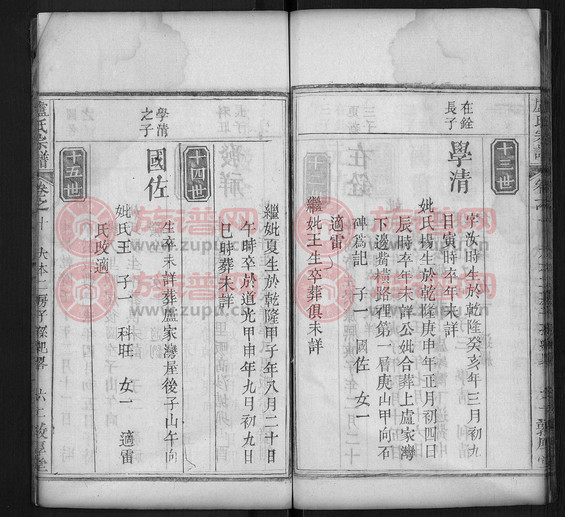 十三世
在銓
長子
學清
字汝時生於乾隆癸亥年三月初九
日寅時卒年未詳
妣氏楊生於乾隆庚申年正月初四日
辰時卒年未詳公妣合葬上盧家灣
下邊 橫路裡第一層庚山甲向石
碑爲記 子一 國佐 女一
適雷
繼妣王生卒葬俱未詳
繼妣夏生於乾隆甲子年八月二十日
午時卒於道光甲申年九月初九日
巳時葬未詳
十四世
學清
之子
國佐
生卒未詳葬盧家灣屋後子山午向
妣氏王 子一 科旺 女一 適雷
氏改適
十五世
盧氏宗譜
卷之十
六十二
族譜网
www.zupu.cn